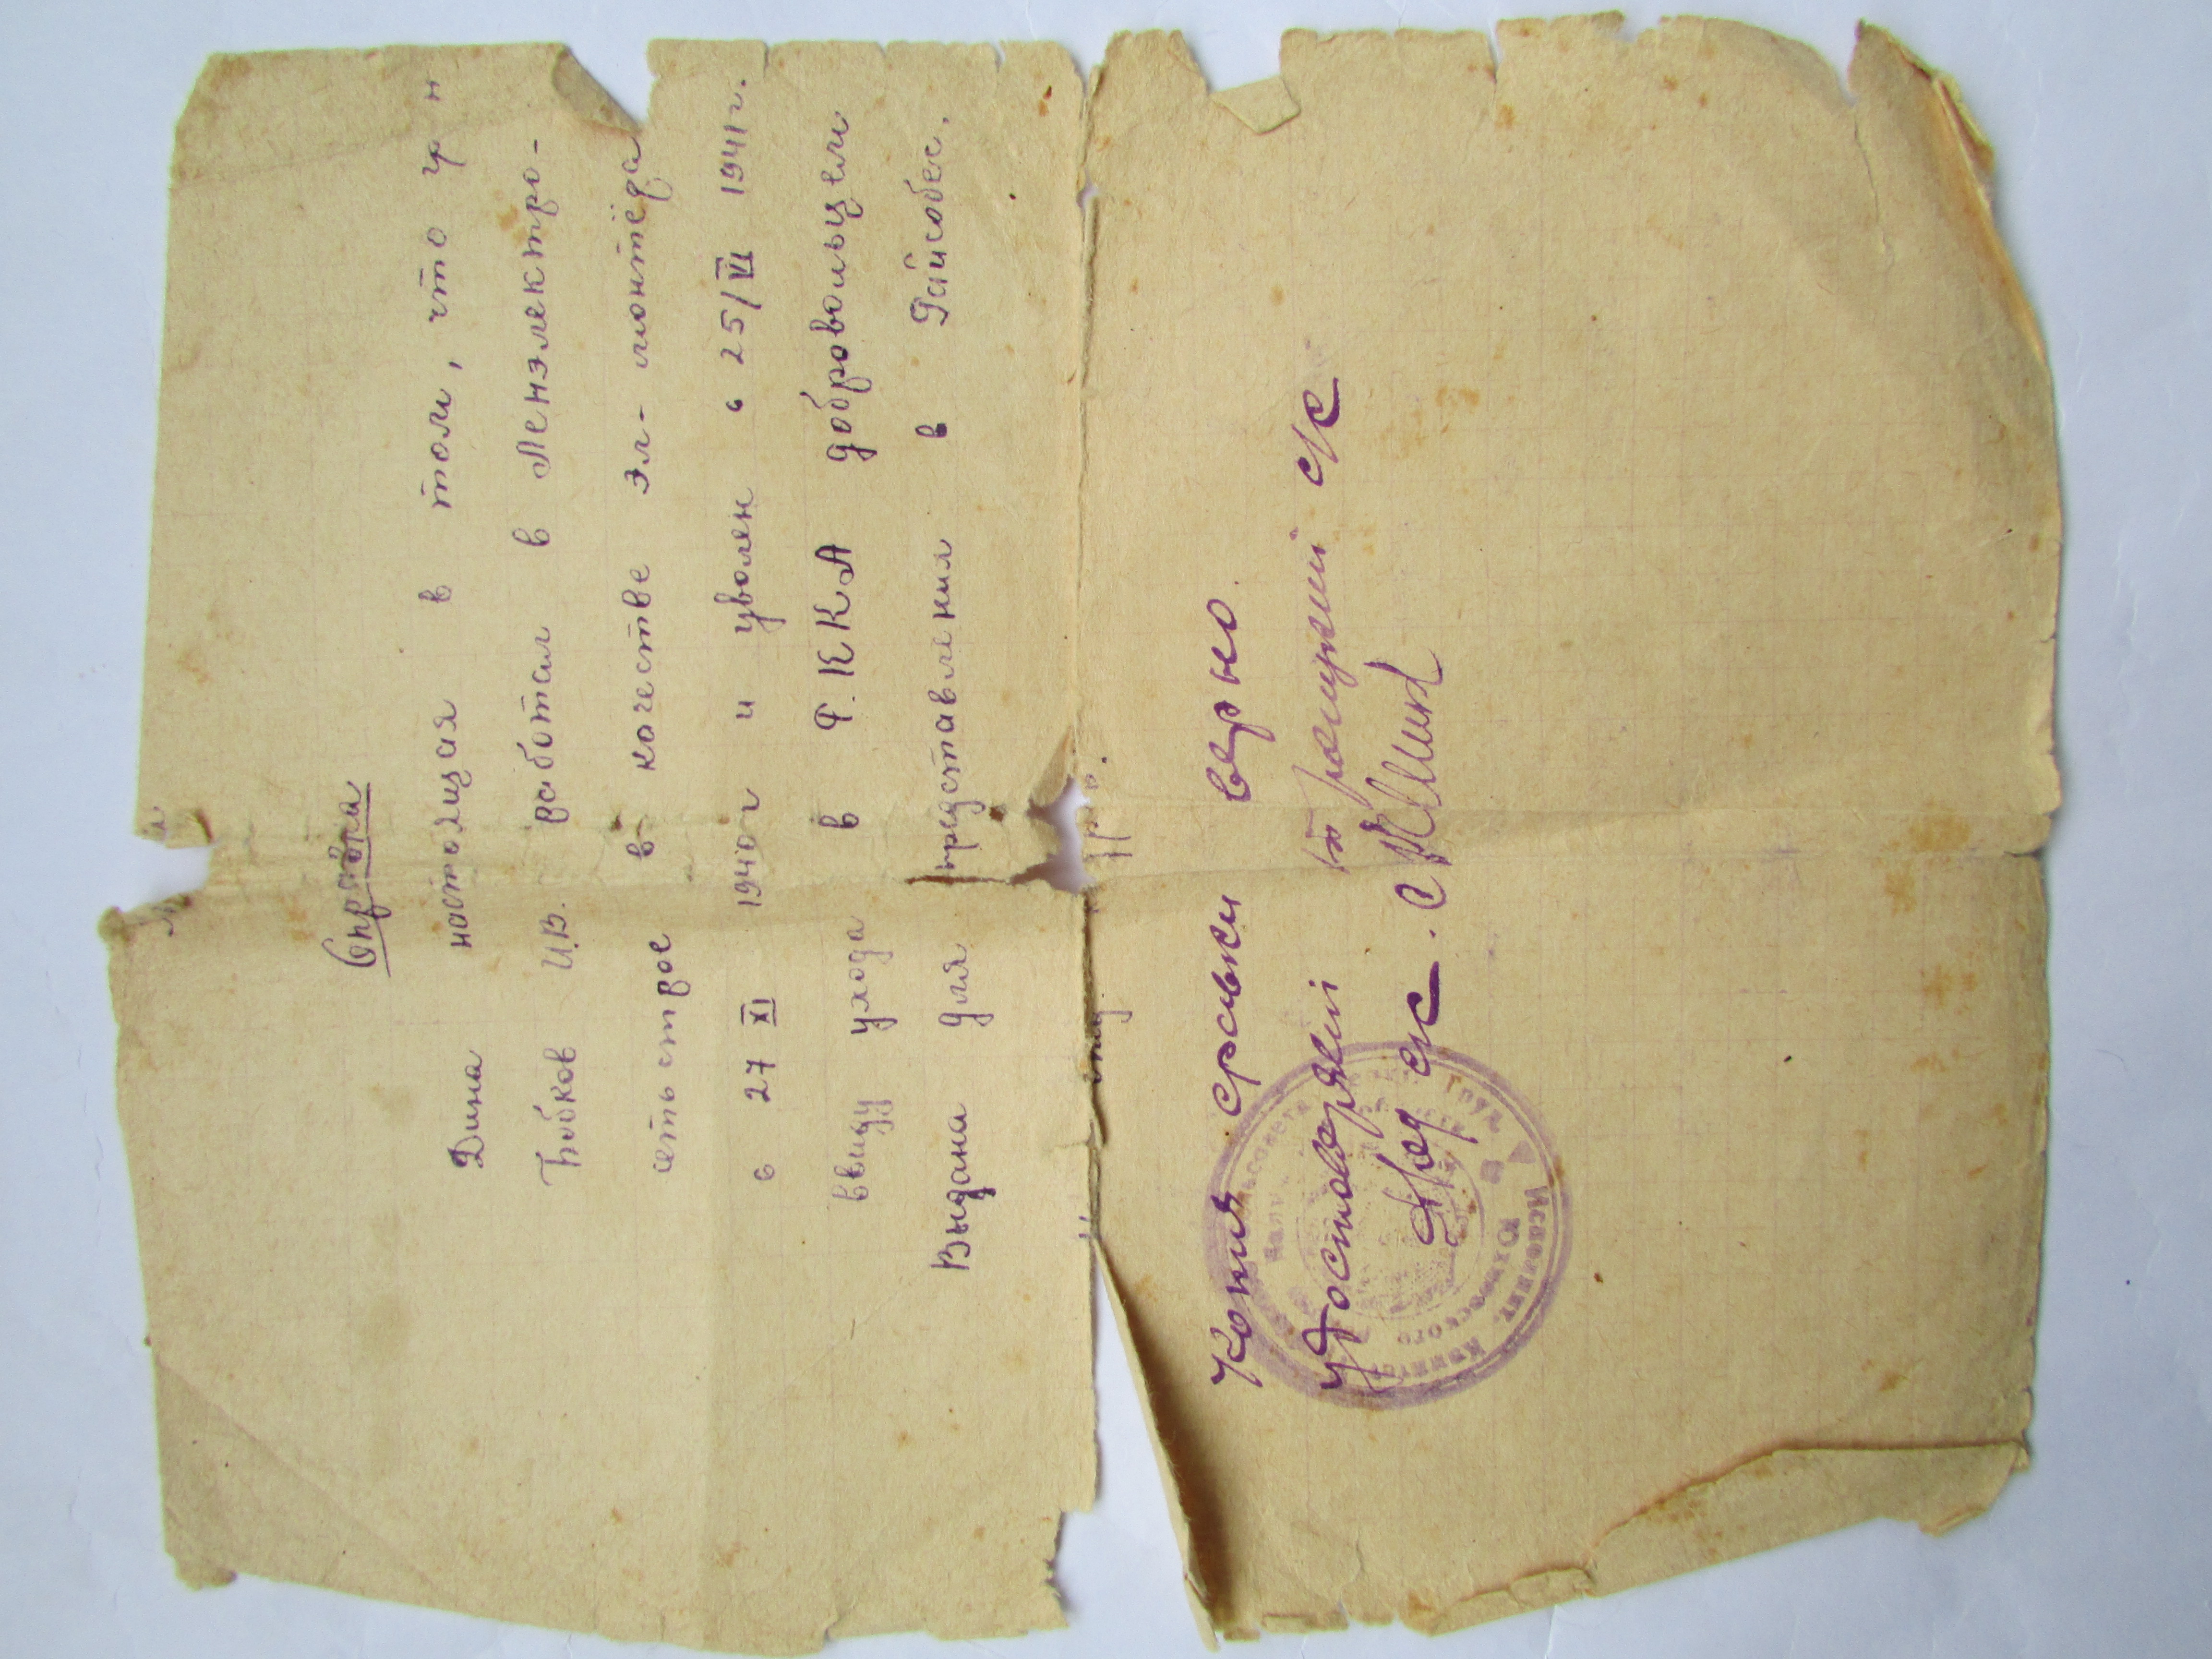 Справка
Дина настоящая в том, что гр н
Бобков И.В. работал в Ленэлектро-
сетьстрое в качестве эл-монтёра
с 27 XI 1940 г и уволен с 25/VI 1941 г.
ввиду ухода в Р.ККА добровольцем
Выдана для представления в Райсобес.
Копия верно.
удостоверяет с/с
Пред с/с.
Исполнит. Комитет
Юхновского